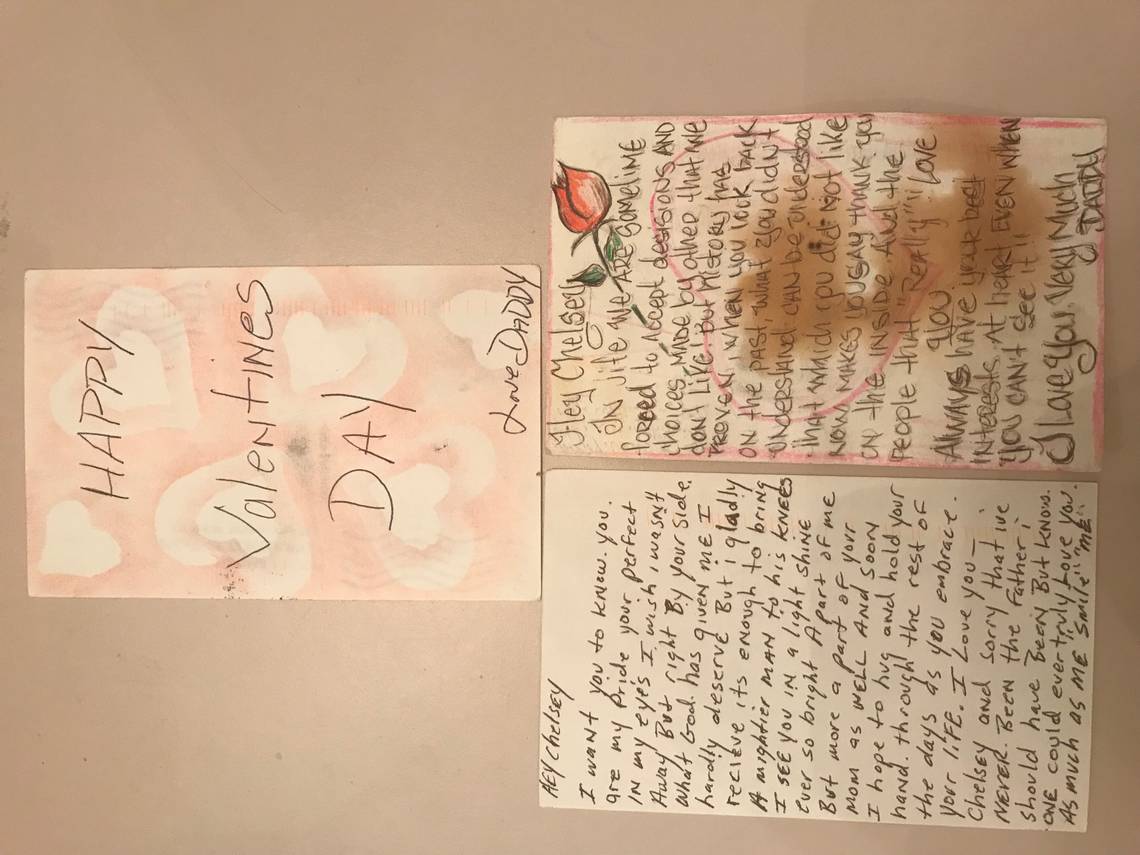 HAPPY
Valentines
DAY
Love DADDY
Hey Chelsey
IN life WE ARE SOMETIME
forced to Accept decisions AND
choices MADE by other that we
don't Live i but history has
PROVE i when you look back
ON the past, what you didn't
UNDERSTAND CAN be understood
that which you did not like
NOW MAKES you say thank you
ON the INSIDE And the
PEOPLE that "REALLY" LOVE
you
Always have your best
INTERESTS At heart EVEN WHEN
YOU CAN't SEE it!!
I LOVE YOU, VERY Much
DADDY
HEY Chelsey
I want you to know. you.
are my pride your perfect
IN my eye's I wish i wasn't
Away But right By your side.
What God has given me I
hardly deserve But i gladly
recieve its enough to bring
A mightier man to his knees
I see you in a light shine
ever so bright A part of me
But more a part of your
Mom as well And soon
I hope to hug and hold your
hand. through the rest of
the days as you embrace.
your life. I Love you—
Chelsey and sorry that ive
NEVER. Been the father i
should have Been But know.
ONE could ever truly Love you.
As much as me smile "ME"